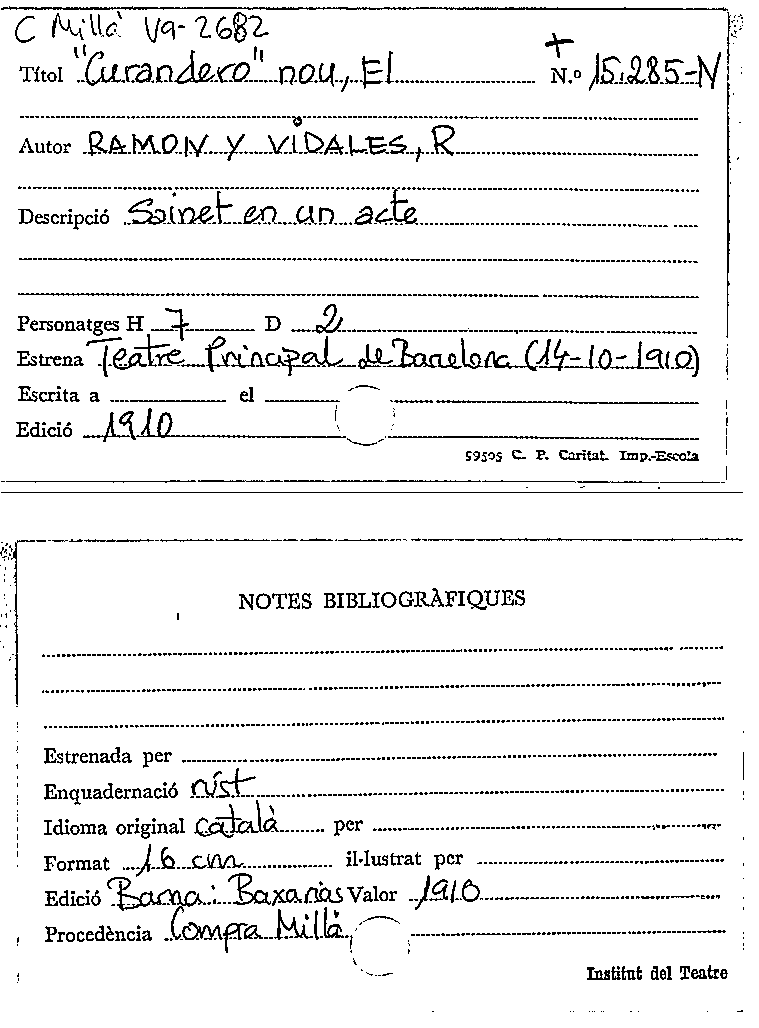 C Millà Va-2682
Títol "Curandero" nou, El N.º 15.285-N
Autor RAMON Y VIDALES, R
Descripció Sainet en un acte
Personatges H 7 D 2
Estrena Teatre Principal de Barcelona (14-10-1910)
Escrita a el
Edició 1910
59505 C. P. Caritat. Imp.-Escola
NOTES BIBLIOGRÀFIQUES
Estrenada per
Enquadernació rúst
Idioma original català per
Format 16 cm il·lustrat per
Edició Barna: Baxarias Valor 1910
Procedència Compra Millà
Institut del Teatre